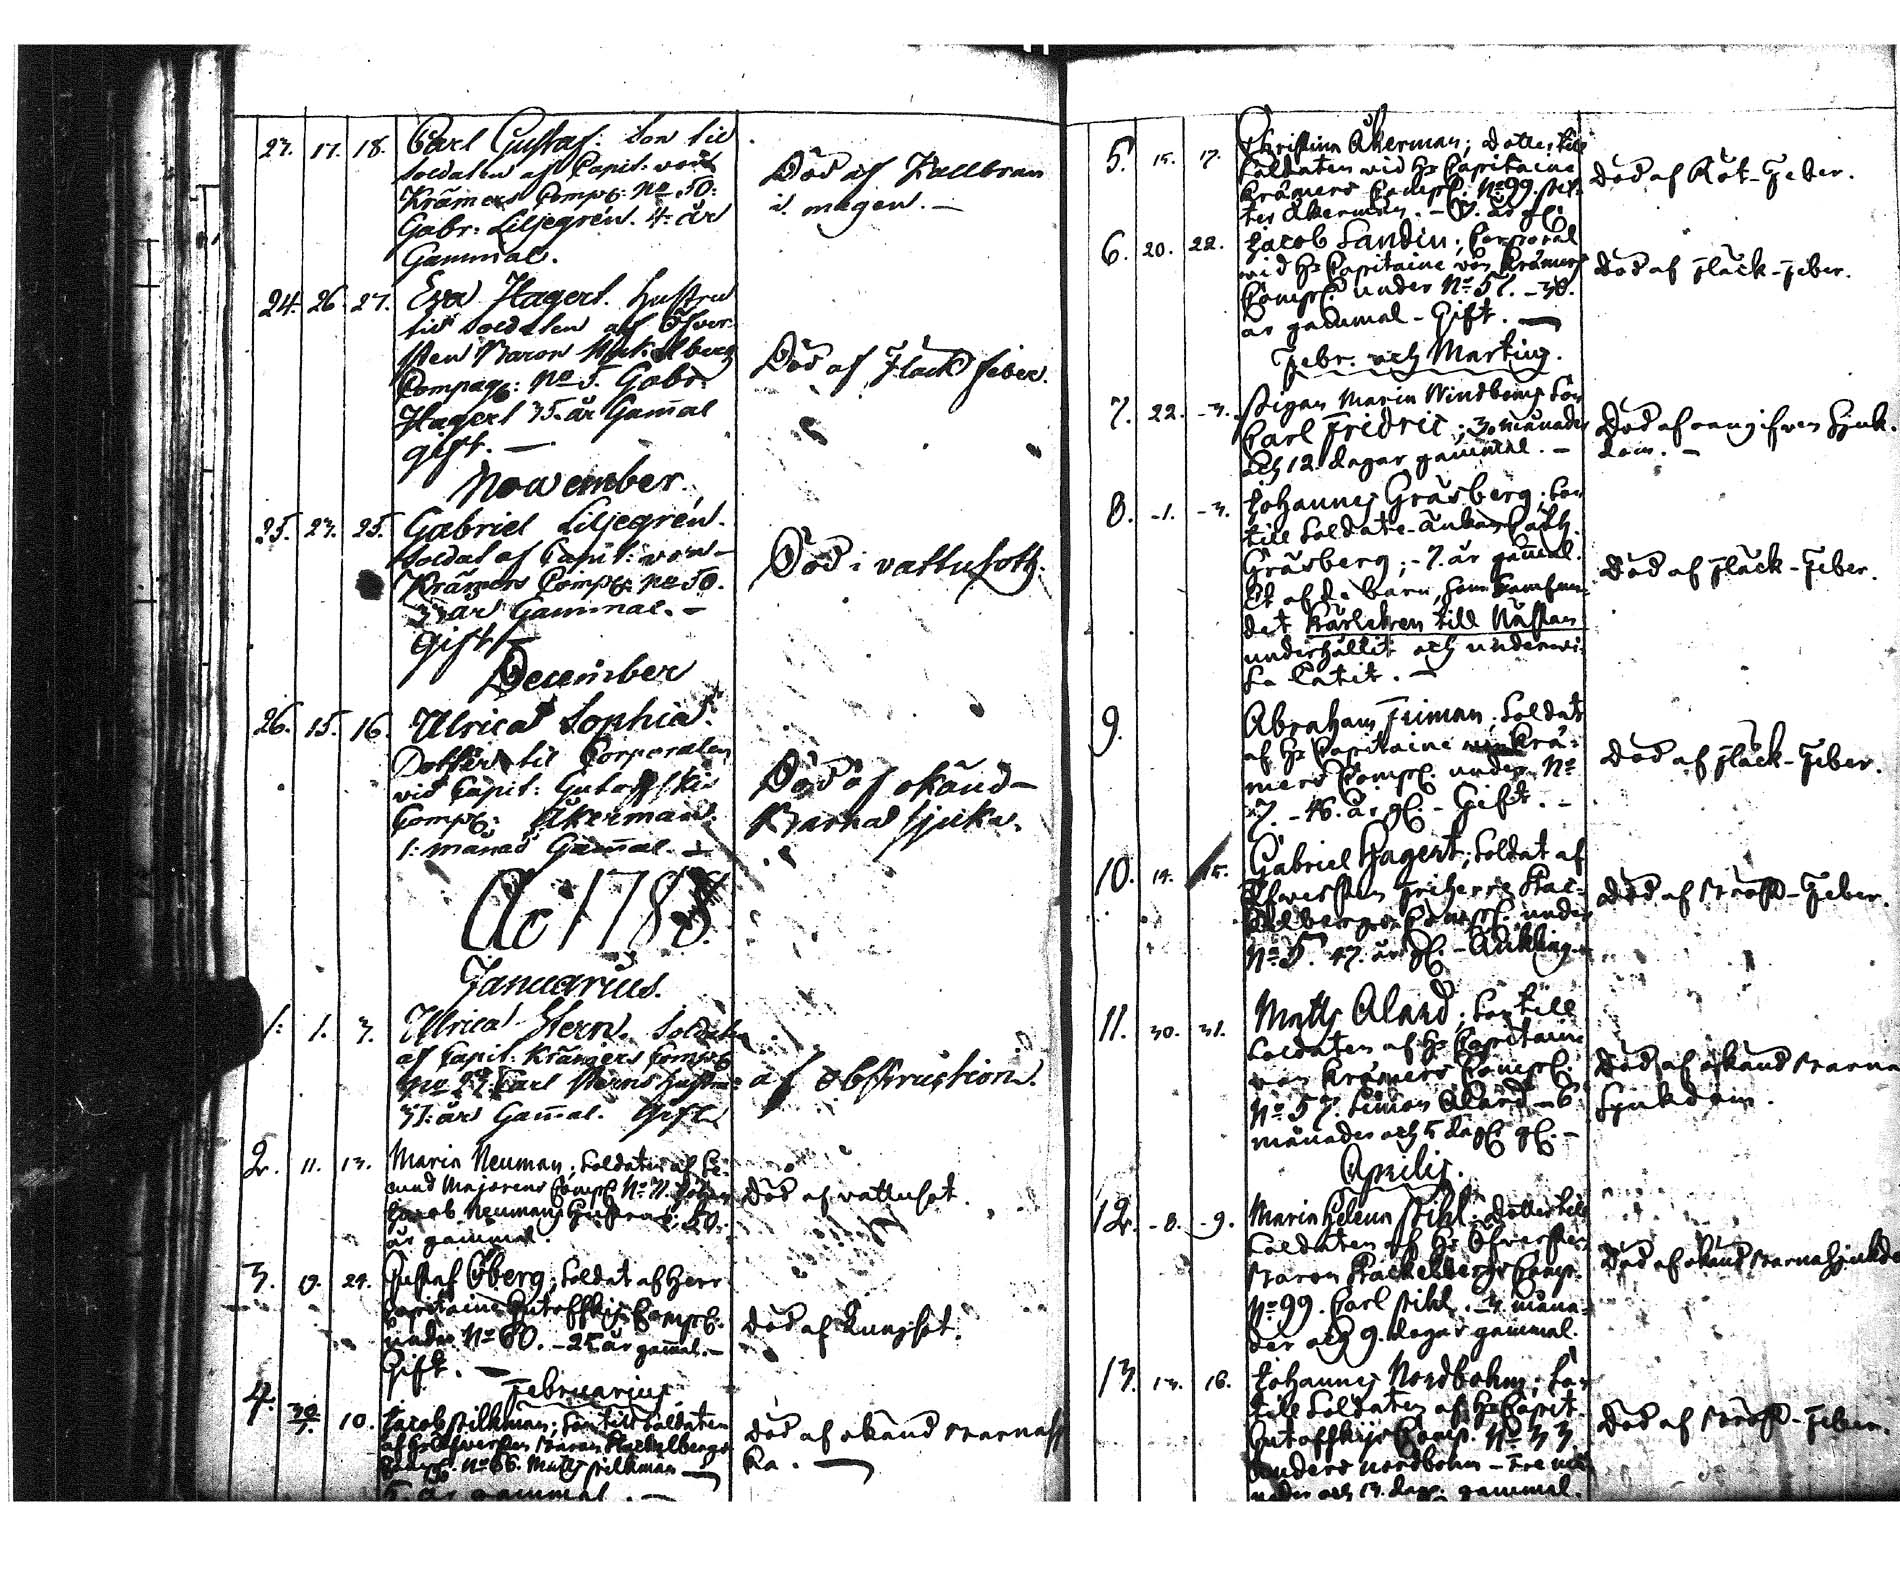 23. 17. 18. Carl Gustaf: Son til
soldaten af Capit: von
Krämers Comp: No 50:
Gabr: Liljegrén. 4: år
Gammal.
Död af Kallbran
i magen. —
24. 26. 27. Eva Hagert. Hustru
til soldaten af Öfver-
sten Baron
Compag: No 5. Gabr:
Hagert 35. år Gam̄al
gift. —
Död af Fläck feber.
November
25. 23. 25. Gabriel Liljegrén.
soldat af Capit: von
Krämers Comp: No 50.
33 år Gammal. —
Gift
Död i vattusoth.
December
26. 15. 16. Ulrica Sophia:
Dotter til Corporalen
vid Capit: Gutoffskis
Comp: Åkerman.
1: månad Gam̄al. —
Död af okänd
Barna sjuka.
Ao 1788.
Januarius.
1. 1. 3. Ulrica Stern. Soldaten
af Capit: Krämers Comp
No 29 Carl Sterns hustru
37: år Gam̄al. Gift
af Obstruction.
2. 11. 13. Maria Neuman; Soldaten af Se-
cund Majorens Comp. No 71. Johan
Jacob Neumans Hustru. 50.
år gammal.
Död af vattusot.
3. 19. 24. Gustaf Öberg; Soldat af Herr
Capitaine Gutoffskijs Comp.
under No 60. – 25 år gam̄al. –
Gift. —
Död af Lungsot.
Februarius.
4. 30/1. 10. Jacob Silkman; Son till Soldaten
af Hr Öfversten Baron Stackelbergs
Comp. No 66. Matts Silkman —
år gammal. —
Död af okänd Barnasju
ka. —
5. 15. 17. Christina Åkerman; Dotter till
Soldaten wid Hr Capitaine
Krämers Comp. No 99.
ter Åkerman. – år gl.
Död af Röt-Feber.
6. 20. 22. Jacob Sandin; Corporal
wid Hr Capitaine von Krämers
Comp. under No 51. – 30.
år gammal – Gift. —
Död af Fläck-Feber.
Febr. och Martius.
7. 22. -3. Pigan Maria Windbergs Son
Carl Fridric; 3 månader
och 12. dagar gammal. –
Död af oangifven Sjuk-
dom. –
8. -1. -3. Johannes Gräsberg; Son
till Soldate-änkan Cath.
Gräsberg; – 7 år gam̄al.
Et af de barn, som Samfun-
det Kärleken till Nästan
underhållit och underwi-
sa låtit. —
Död af Fläck-Feber.
9. Abraham Friman. Soldat
af Hr Capitaine von Krä-
mers Comp. under No
7. – 46. år gl. – Gift. –
Död af Fläck-Feber.
10. 14. 15. Gabriel Hagert; Soldat af
Öfwersten Friherre Stac-
kelbergs Comp. under
No 5. 47. år gl. – Enkling
Död af Bröst-Feber.
11. 30. 31. Matts Alard; Son till
Soldaten af Hr Capitaine
von Krämers Comp.
No 57. Simon Alard – 6
månader och 5 dag. gl. –
Död af okänd Barna
Sjukdom.
Aprilis.
12. -8. -9. Maria Helena Pihl; Dotter till
Soldaten af Hr Öfversten
Baron Stackelbergs Comp.
No 99. Carl Pihl. – 4 måna-
der och 9. dagar gammal.
Död af okänd Barnasjukdo
13. 13. 16. Johannes Nordbohm; Son
till Soldaten af Hr Capit.
Gutoffskijs Comp. No 33
Anders Nordbohm – Fre må-
nader och 13. dagr. gammal.
Död af Bröst-Feber.